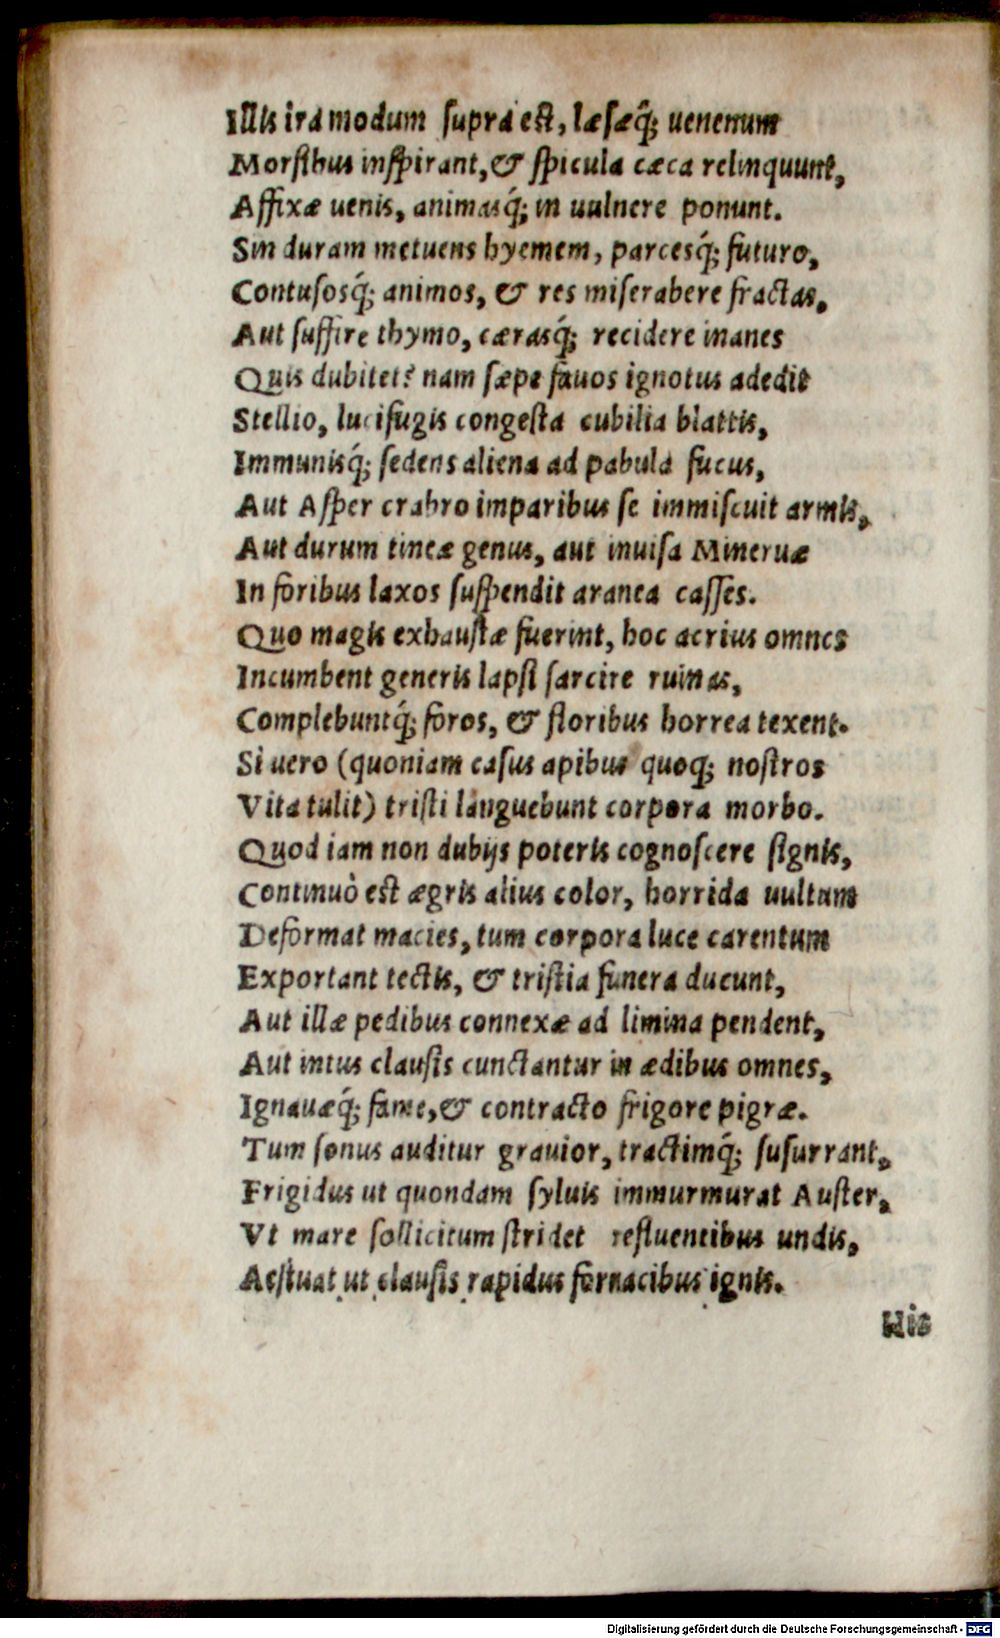 Illis ira modum supra est, læsæq́; uenenum
Morsibus inspirant, & spicula cæca relinquunt,
Affixæ uenis, animasq́; in uulnere ponunt.
Sin duram metuens hyemem, parcesq́; futuro,
Contusosq́; animos, & res miserabere fractas,
Aut suffire thymo, cærasq́; recidere inanes
Quis dubitet? nam sæpe fauos ignotus adedit
Stellio, lucifugis congesta cubilia blattis,
Immunisq́; sedens aliena ad pabula fucus,
Aut Asper crabro imparibus se immiscuit armis,
Aut durum tineæ genus, aut inuisa Mineruæ
In foribus laxos suspendit aranea casses.
Quo magis exhaustæ fuerint, hoc acrius omnes
Incumbent generis lapsi sarcire ruinas,
Complebuntq́; foros, & floribus horrea texent.
Si uero (quoniam casus apibus quoq; nostros
Vita tulit) tristi languebunt corpora morbo.
Quod iam non dubijs poteris cognoscere signis,
Continuò est ægris alius color, horrida uultum
Deformat macies, tum corpora luce carentum
Exportant tectis, & tristia funera ducunt,
Aut illæ pedibus connexæ ad limina pendent,
Aut intus clausis cunctantur in ædibus omnes,
Ignauæq́; fame, & contracto frigore pigræ.
Tum sonus auditur grauior, tractimq́; susurrant,
Frigidus ut quondam syluis immurmurat Auster,
Vt mare sollicitum stridet refluentibus undis,
Aestuat ut clausis rapidus fornacibus ignis.
His
Digitalisierung gefördert durch die Deutsche Forschungsgemeinschaft - DFG